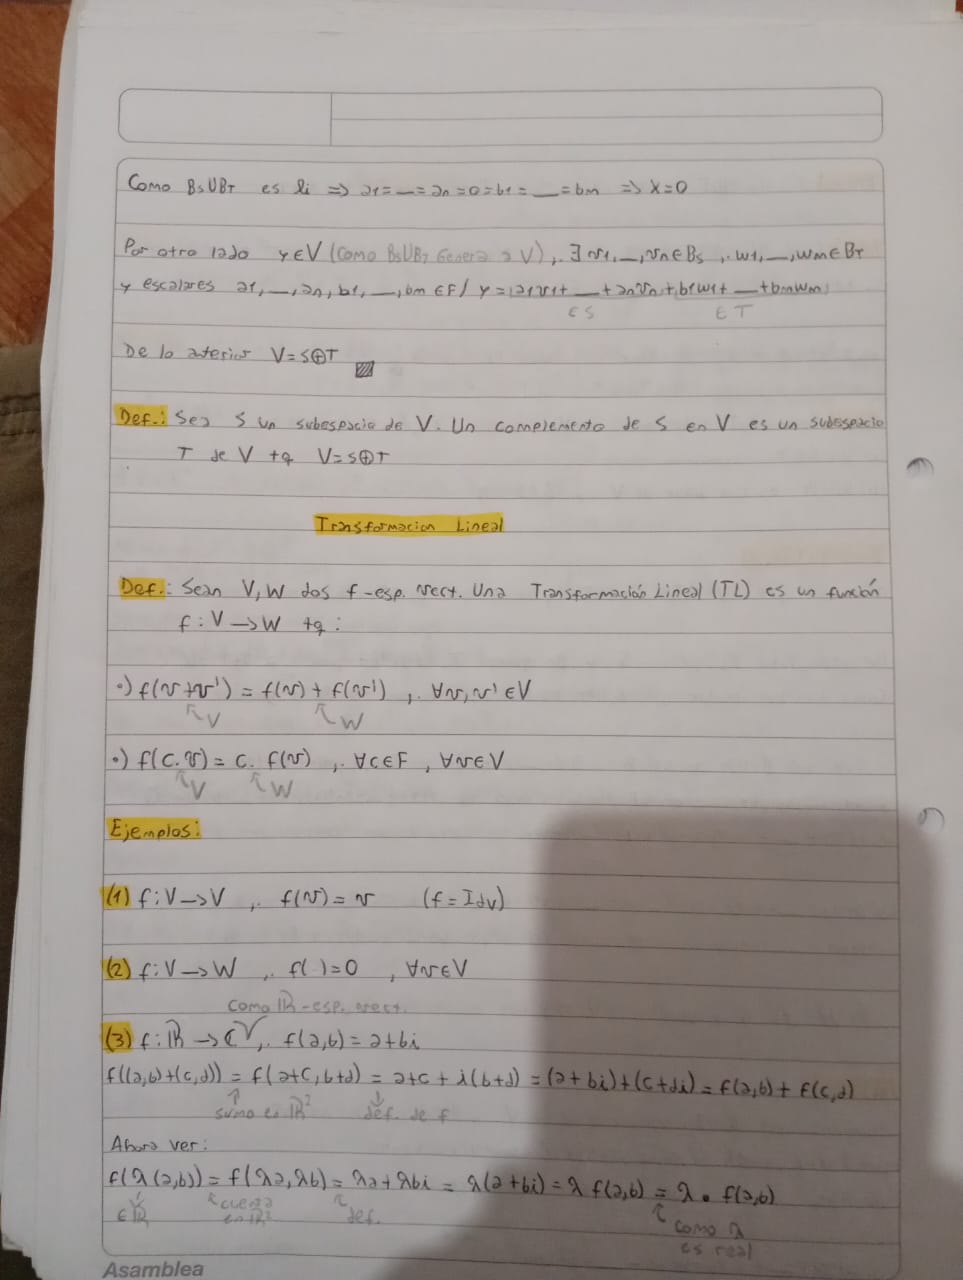 Como BsUBT es li => a1=__=an=0=b1=__=bm => x=0
Por otro lado y∈V (Como BsUBT Genera a V),. ∃ v1,__,vn∈Bs ,. w1,__,wm∈BT
y escalares a1,__,an,b1,__,bm ∈F/ y=a1v1+__+anvn+b1w1+__+bmwm
∈S ∈T
De lo aterior V=S⊕T
Def.: Sea S un subespacio de V. Un complemento de S en V es un subespacio
T de V tq V=S⊕T
Transformacion Lineal
Def.: Sean V,W dos f-esp. vect. Una Transformación Lineal (TL) es un función
f:V→W tq:
•) f(v+v')=f(v)+f(v') ,. ∀v,v'∈V
V W
•) f(c.v)=c.f(v) ,. ∀c∈F, ∀v∈V
V W
Ejemplos:
(1) f:V→V ,. f(v)=v (f=Idv)
(2) f:V→W ,. f( )=0 , ∀v∈V
como ℝ-esp. vect.
(3) f:ℝ→ℂ,. f(a,b)=a+bi
f((a,b)+(c,d))=f(a+c,b+d)=a+c+i(b+d)=(a+bi)+(c+di)=f(a,b)+f(c,d)
↑ suma en ℝ² ↓ def. de f
Ahora ver:
f(λ(a,b))=f(λa,λb)=λa+λbi=λ(a+bi)=λf(a,b)=λ•f(a,b)
∈ℝ cuenta en ℝ² def. como λ
es real
Asamblea